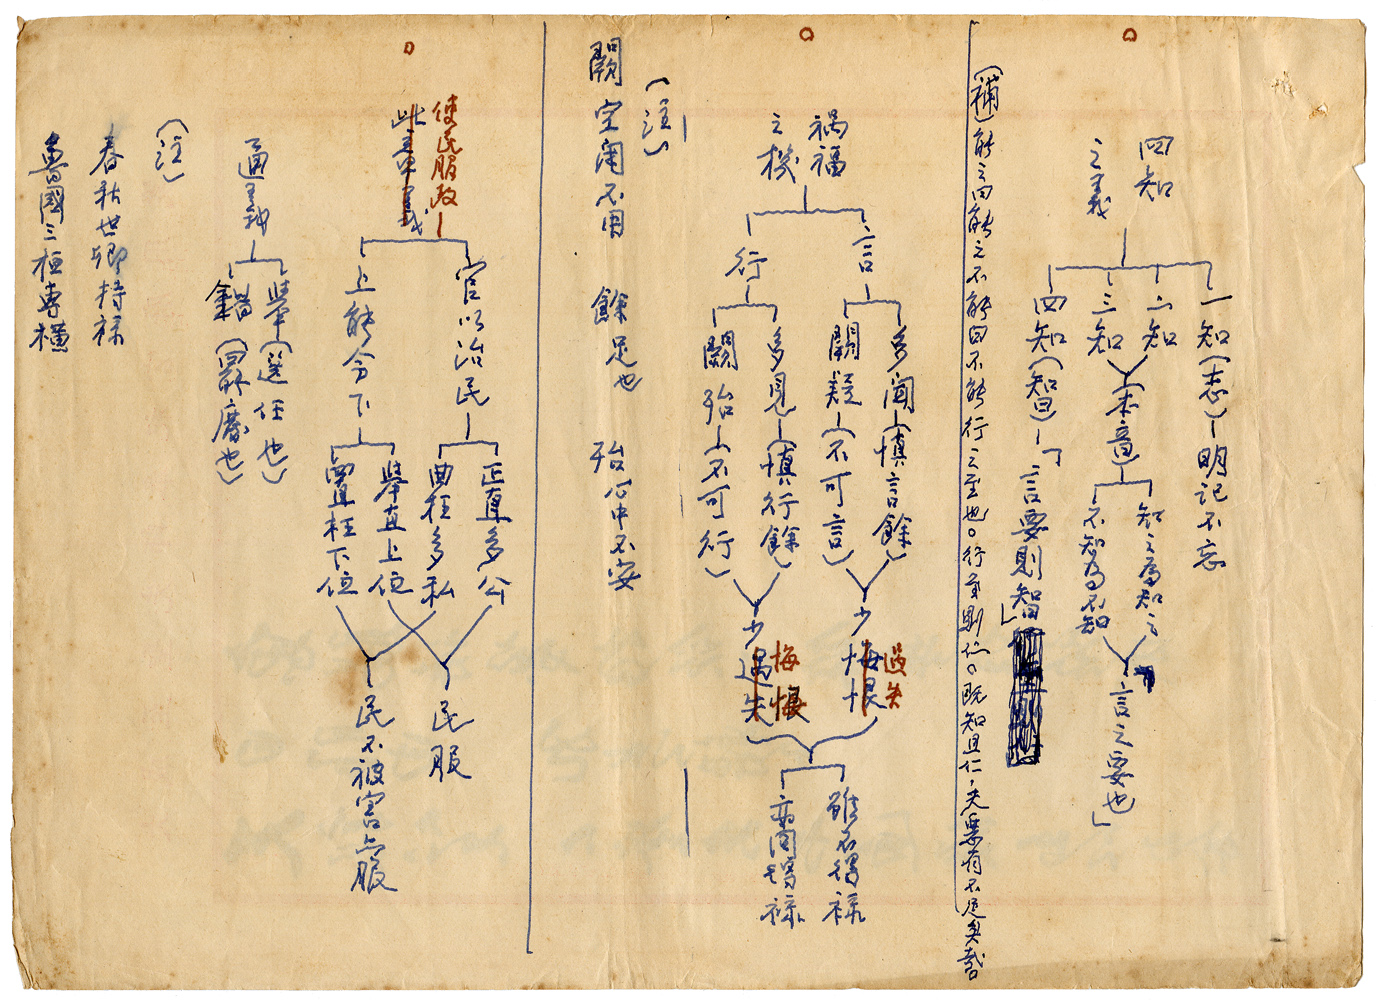 四知
之義
一知（志）｜明記不忘
二知
三知
（本音）
知之為知之
不知為不知
「言之要也」
四知（智）｜「言要則智」
（補）能之曰能之不能曰不能行之至也。行至則仁。既知且仁，夫惡有不足矣哉
禍福
之機
言
多聞｜（慎言餘）
闕疑｜（不可言）
少悔恨
過失
行
多見｜（慎行餘）
闕殆｜（不可行）
少過失
悔恨
雖不得祿
亦同得祿
（注）
闕 空闕不用 餘 足也 殆 心中不安
使民服政
官以治民
正直多公
曲枉多私
上能令下
舉直上位
置枉下位
民服
民不被害無服
通義
舉（選任也）
錯（罷廢也）
（注）
春秋世卿持祿
魯國三桓專橫